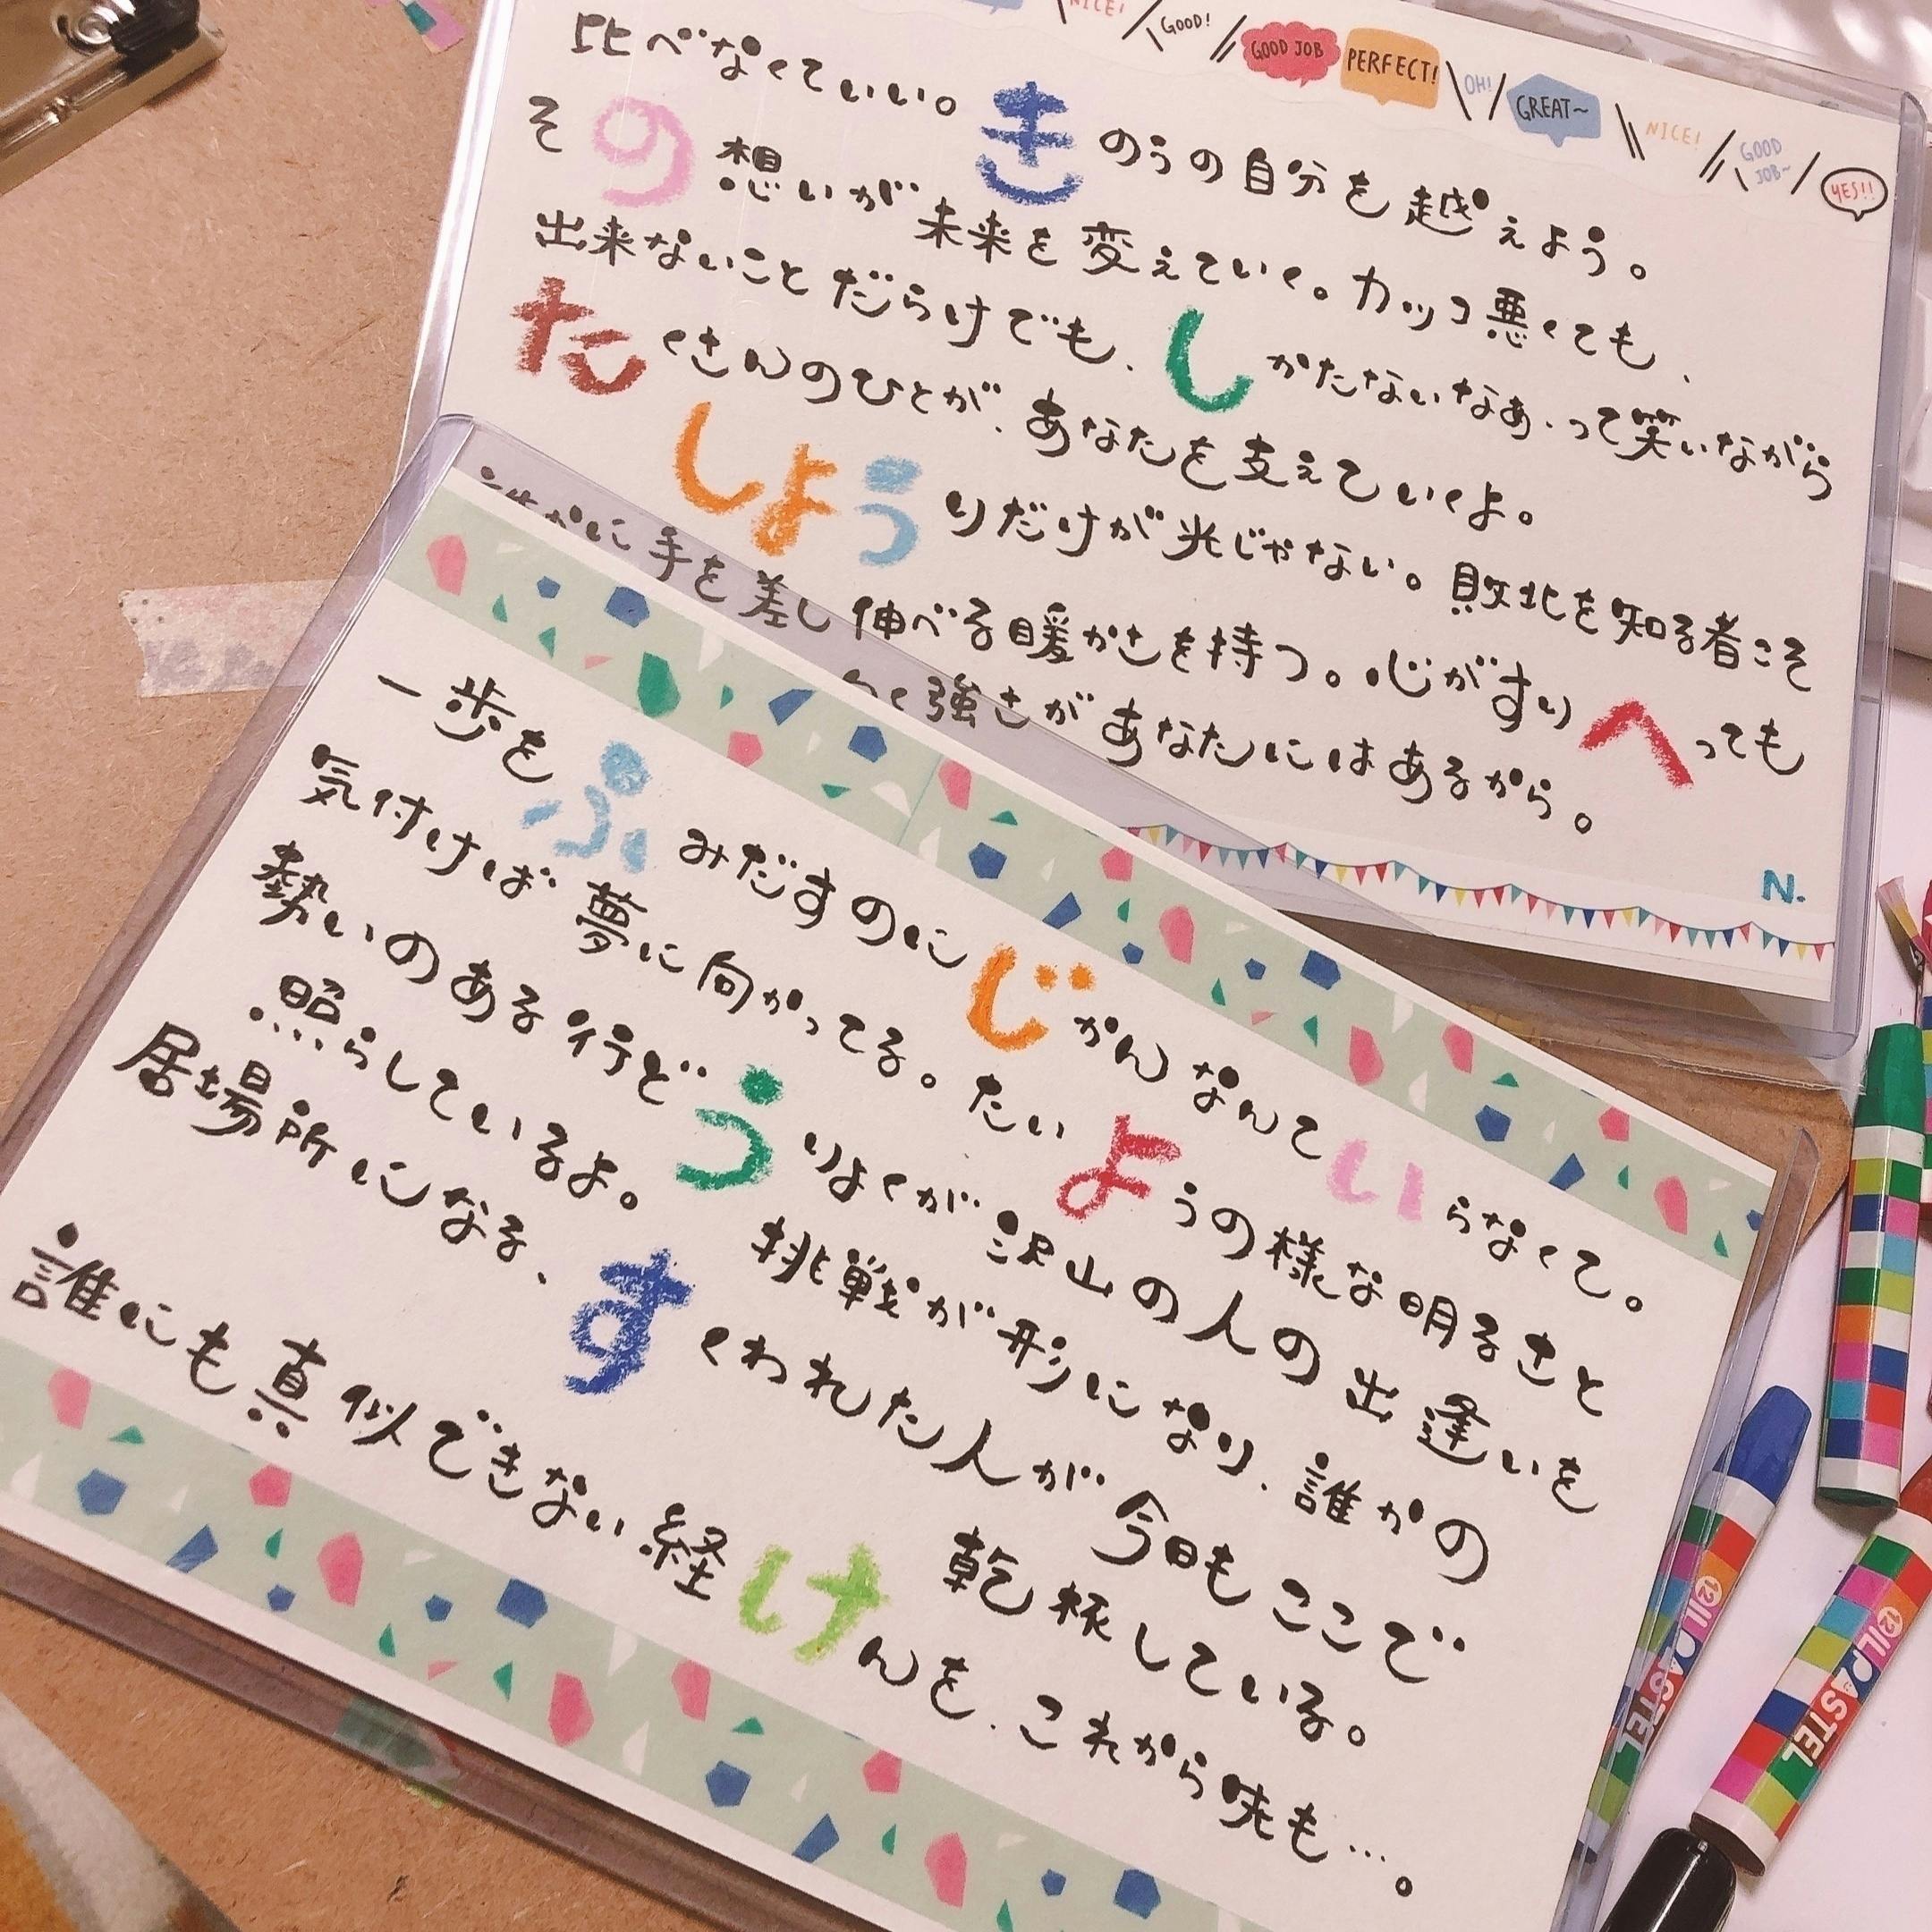 NICE! GOOD! GOOD JOB PERFECT! OH! GREAT~ NICE! GOOD JOB~ YES!!
比べなくていい。きのうの自分を越えよう。
その想いが未来を変えていく。カッコ悪くても、
出来ないことだらけでも、しかたないなあ、って笑いながら
たくさんのひとが、あなたを支えていくよ。
しょうりだけが光じゃない。敗北を知る者こそ
誰かに手を差し伸べる暖かさを持つ。心がすりへっても
く強さがあなたにはあるから。
N.
一歩をふみだすのにじかんなんていらなくて。
気付けば夢に向かってる。たいようの様な明るさと
勢いのある行どうりょくが沢山の人の出逢いを
照らしているよ。挑戦が形になり、誰かの
居場所になる、すくわれた人が今日もここで
乾杯している。
誰にも真似できない経けんを、これから も…。
PASTEL
PASTEL